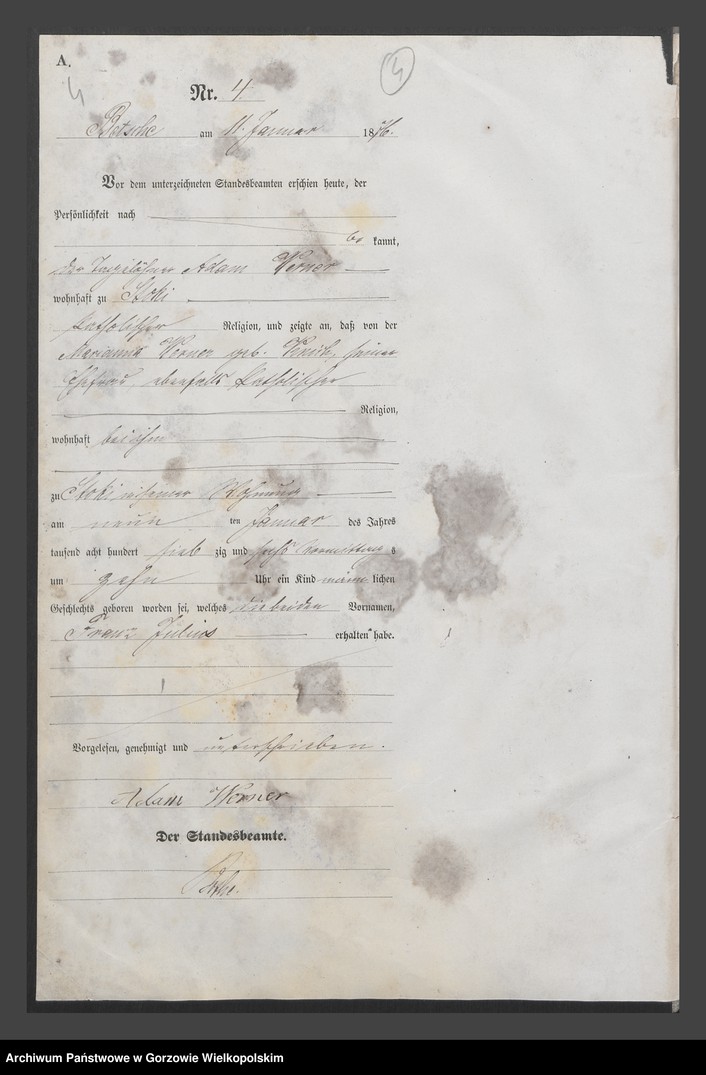 A.
4
4
Nr. 4.
Betsche am 11. Januar 1876.
Vor dem unterzeichneten Standesbeamten erschien heute, der
Persönlichkeit nach
be kannt,
der Tagelöhner Adam Werner
wohnhaft zu Stoki
katholischer Religion, und zeigte an, daß von der
Marianna Werner geb. seiner
Ehefrau, ebenfalls katholischer
Religion,
wohnhaft bei ihm
zu Stoki in seiner Wohnung
am neun ten Januar des Jahres
tausend acht hundert sieb zig und sechs Vormittag s
um zehn Uhr ein Kind männ lichen
Geschlechts geboren worden sei, welches die beiden Vornamen,
Franz Julius erhalten habe.
Vorgelesen, genehmigt und unterschrieben.
Adam Werner
Der Standesbeamte.
Archiwum Państwowe w Gorzowie Wielkopolskim